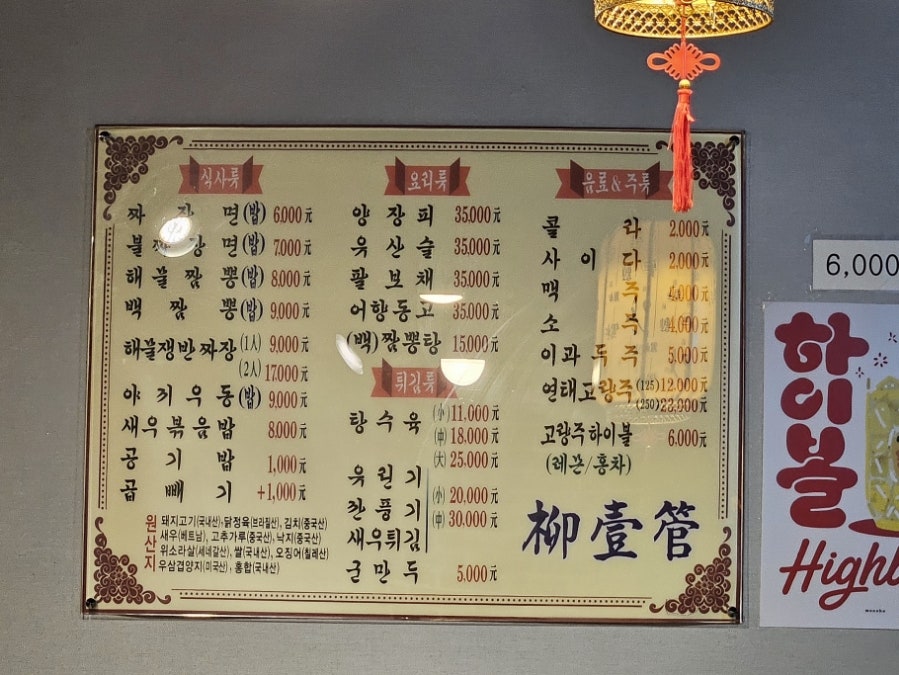 식사류
짜장면(밥) 6,000元
불짜장면(밥) 7,000元
해물짬뽕(밥) 8,000元
백짬뽕(밥) 9,000元
해물쟁반짜장 (1人) 9,000元
(2人) 17,000元
야끼우동(밥) 9,000元
새우볶음밥 8,000元
공기밥 1,000元
곱빼기 +1,000元
원산지
돼지고기(국내산), 닭정육(브라질산), 김치(중국산)
새우(베트남), 고추가루(중국산), 낙지(중국산)
위소라살(세네갈산), 쌀(국내산), 오징어(칠레산)
우삼겹양지(미국산), 홍합(국내산)
요리류
양장피 35,000元
유산슬 35,000元
팔보채 35,000元
어향동고 35,000元
(백)짬뽕탕 15,000元
튀김류
탕수육 (小) 11,000元
(中) 18,000元
(大) 25,000元
유린기
깐풍기
새우튀김
(小) 20,000元
(中) 30,000元
군만두 5,000元
음료&주류
콜라 2,000元
사이다 2,000元
맥주 4,000元
소주 4,000元
이과두주 5,000元
연태고량주 (125) 12,000元
(250) 23,000元
고량주하이볼 6,000元
(레몬/홍차)
柳壹管
6,000
하이볼
Highb